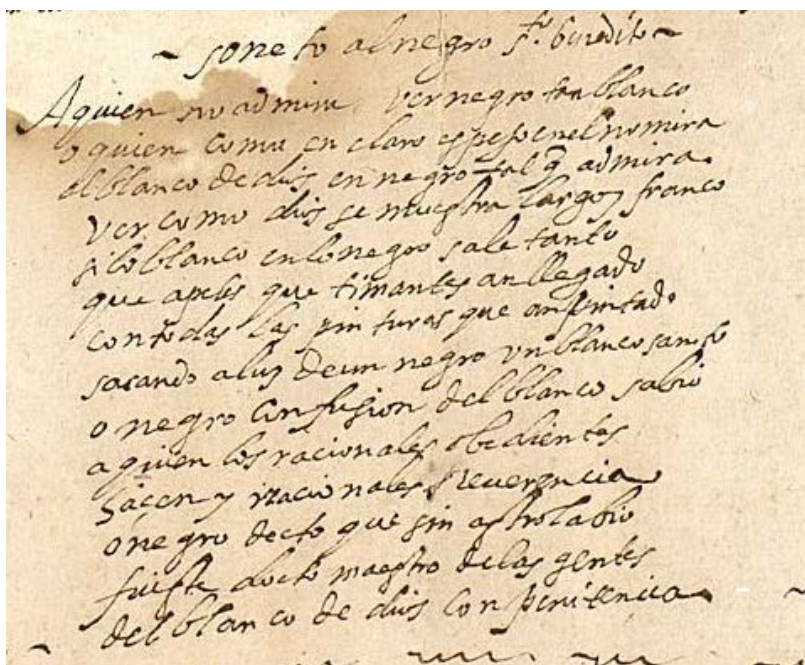 ~ soneto al negro st.º benedito ~
A quien no admira ver negro tan blanco
o quien como en claro espejo en el no mira
al blanco de dios en negro tal q̃ admira
ver como dios se muestra largo y franco
si lo blanco en lo negro sale tanto
que apeles que timantes an llegado
con todas las pinturas que an pintado
sacando a luz de un negro vn blanco santo
o negro confusion del blanco sabio
a quien los racionales obedientes
hacen y irracionales reuerencia
o negro docto que sin astrolabio
fuiste docto maestro de las gentes
del blanco de dios con penitencia